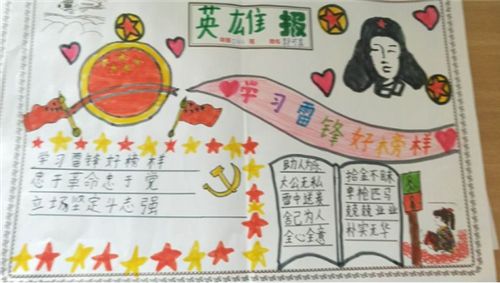 英雄报
学习雷锋好榜样
学习雷锋好榜样
忠于革命忠于党
立场坚定斗志强
助人为乐
大公无私
雪中送炭
舍己为人
全心全意
拾金不昧
单枪匹马
兢兢业业
朴实无华